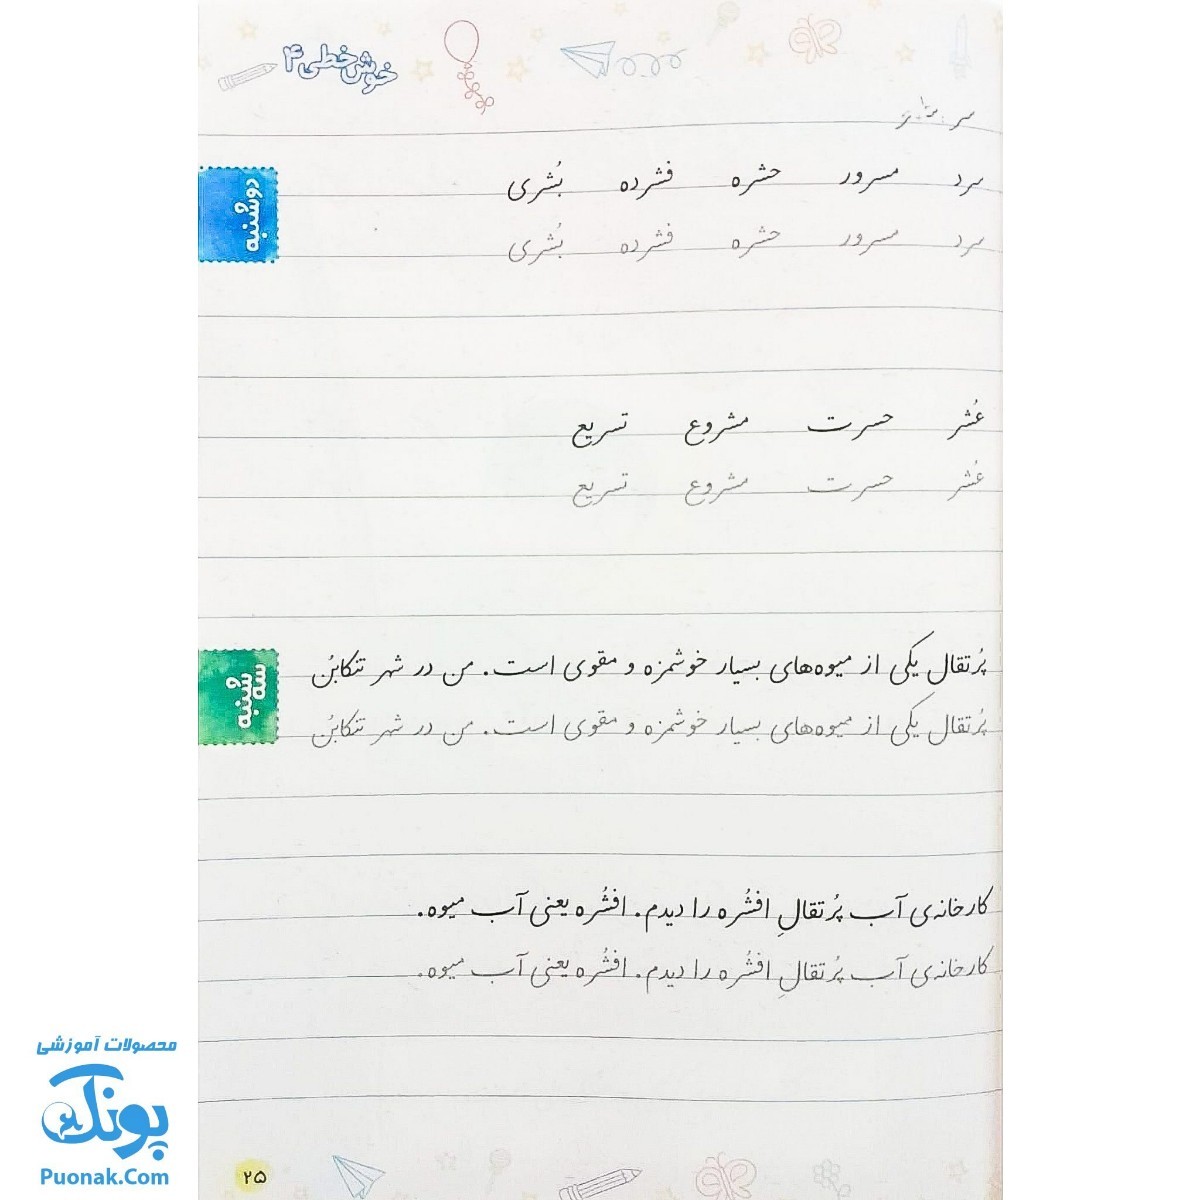 خوش‌خطی ۴
دوشنبه
سرد مسرور حشره فشرده بُشری
سرد مسرور حشره فشرده بُشری
عُشر حسرت مشروع تسریع
عُشر حسرت مشروع تسریع
سه‌شنبه
پُرتقال یکی از میوه‌های بسیار خوشمزه و مقوی است. من در شهر تنکابُن
پُرتقال یکی از میوه‌های بسیار خوشمزه و مقوی است. من در شهر تنکابُن
کارخانه‌ی آب پُرتقالِ افشُره را دیدم. افشُره یعنی آب میوه.
کارخانه‌ی آب پُرتقالِ افشُره را دیدم. افشُره یعنی آب میوه.
۲۵
محصولات آموزشی
پونک
Puonak.Com